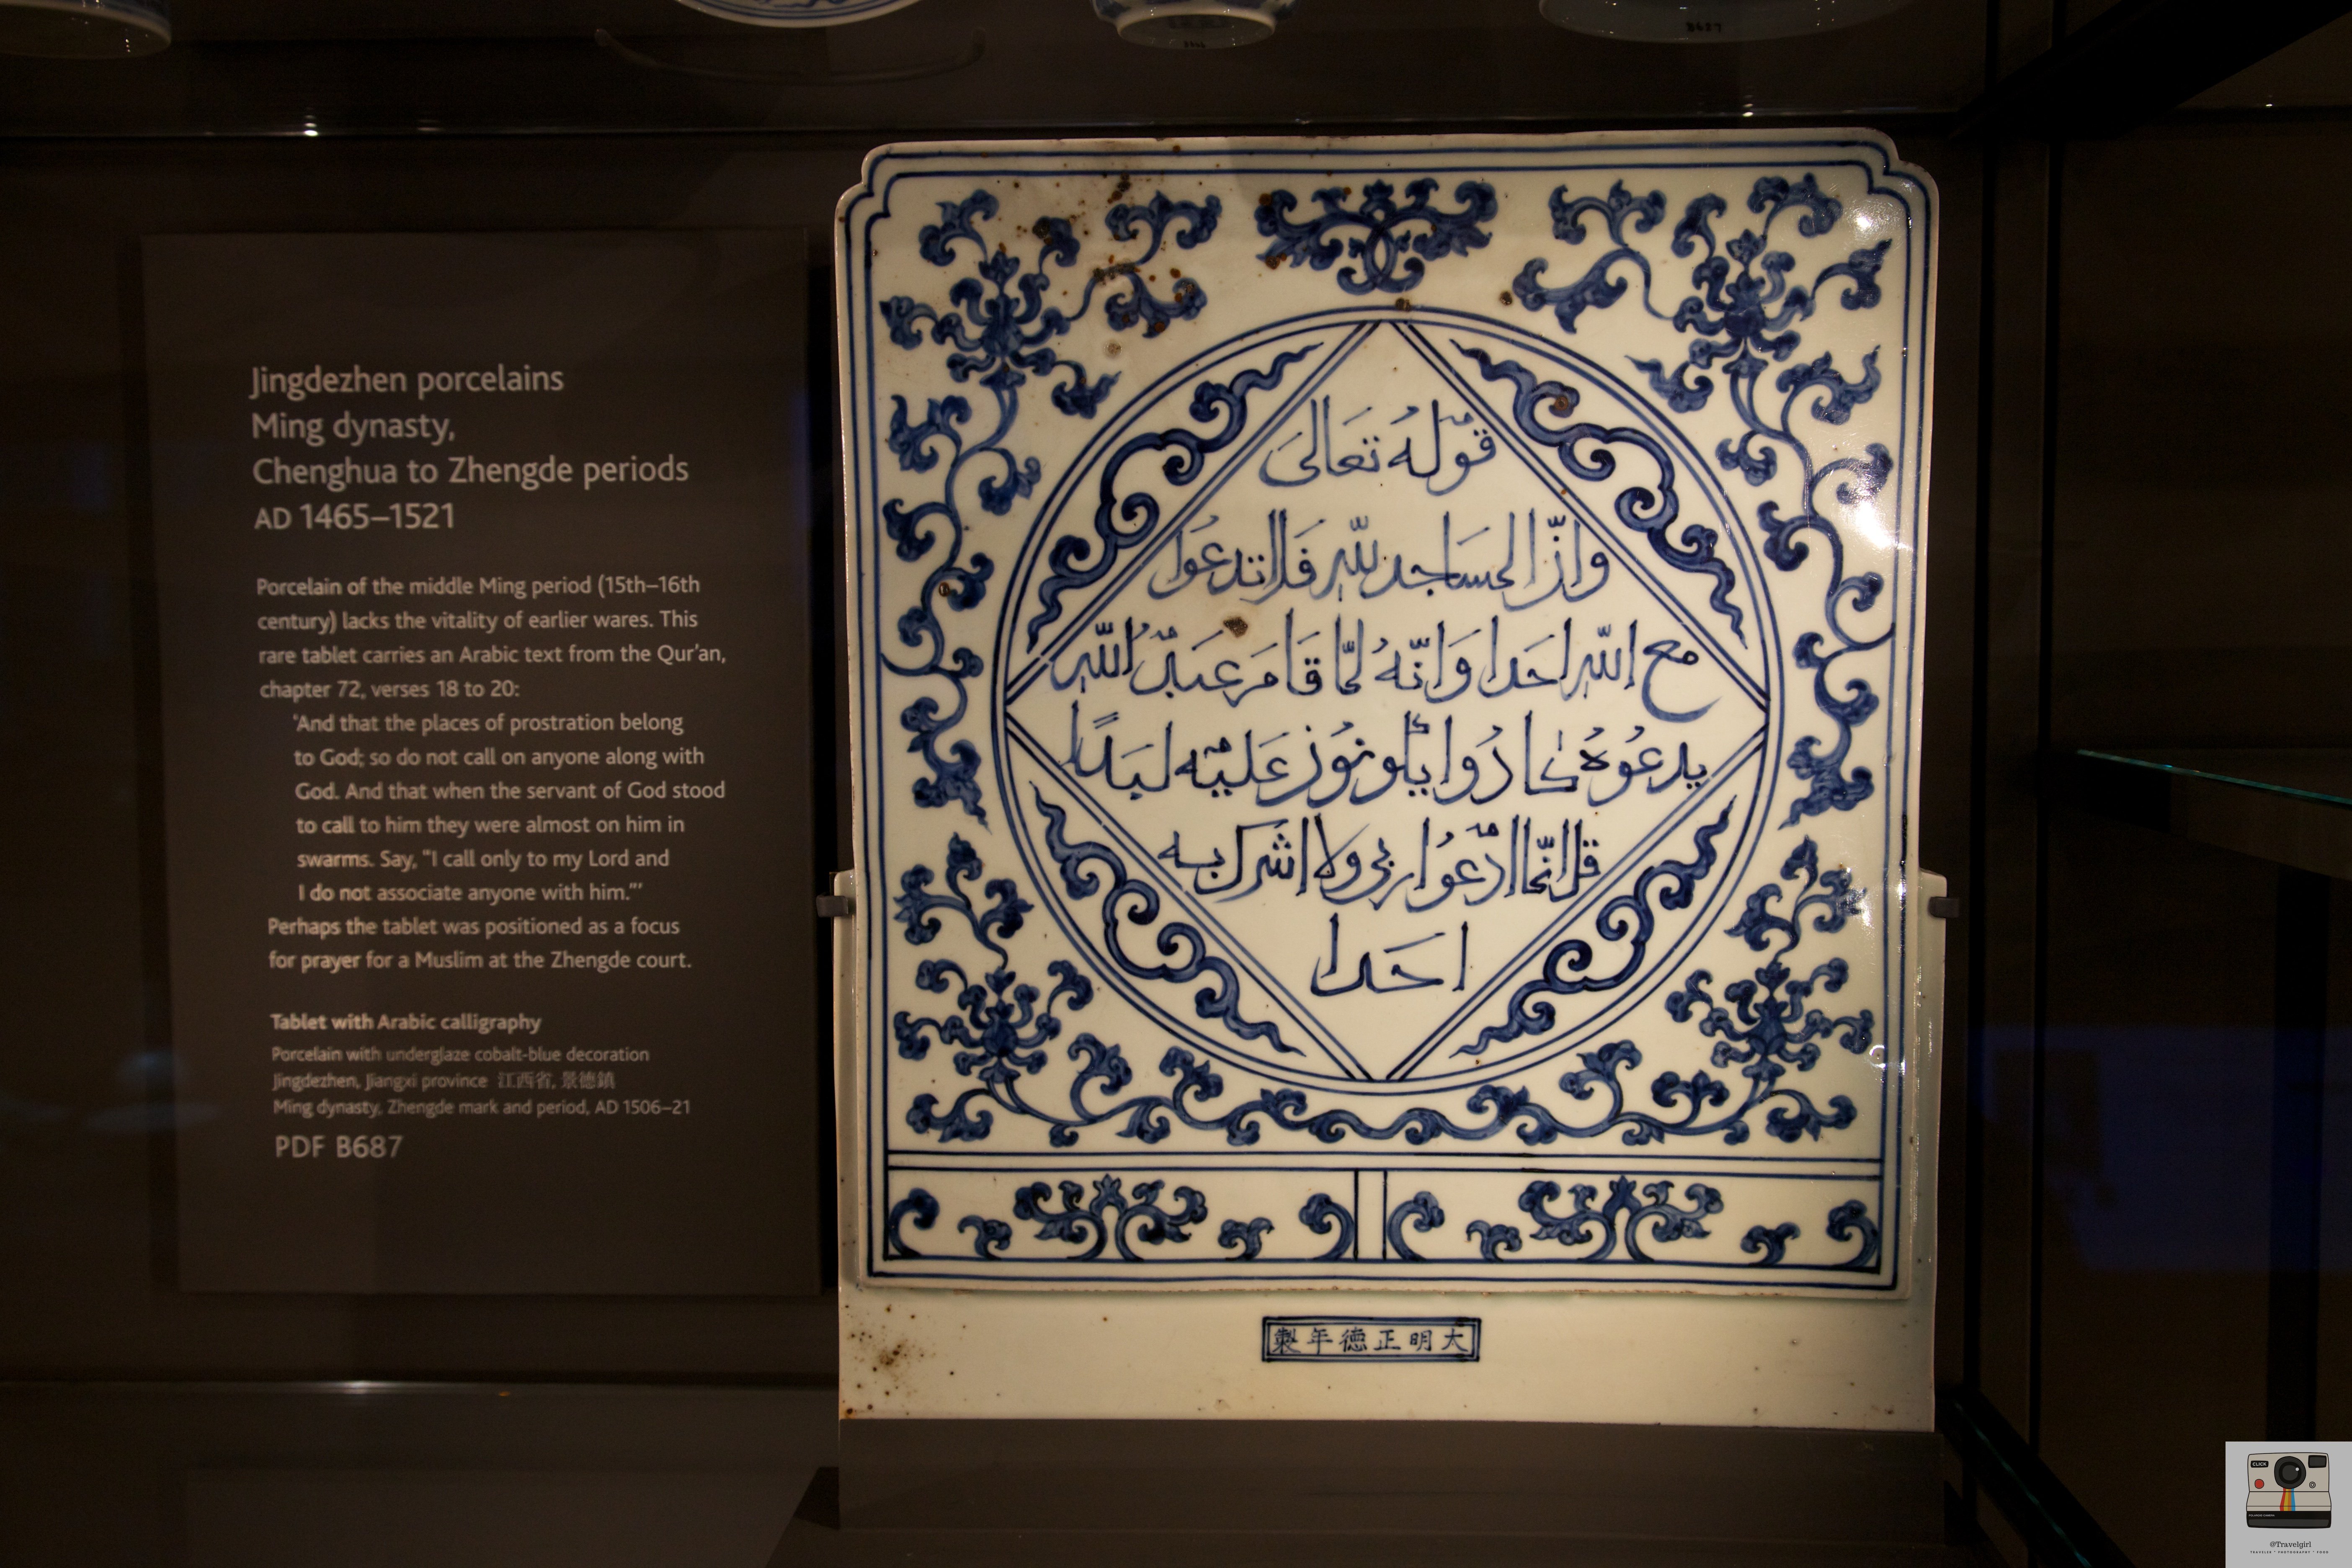 Jingdezhen porcelains
Ming dynasty,
Chenghua to Zhengde periods
AD 1465–1521
Porcelain of the middle Ming period (15th–16th
century) lacks the vitality of earlier wares. This
rare tablet carries an Arabic text from the Qur'an,
chapter 72, verses 18 to 20:
'And that the places of prostration belong
to God; so do not call on anyone along with
God. And that when the servant of God stood
to call to him they were almost on him in
swarms. Say, "I call only to my Lord and
I do not associate anyone with him."'
Perhaps the tablet was positioned as a focus
for prayer for a Muslim at the Zhengde court.
Tablet with Arabic calligraphy
Porcelain with underglaze cobalt-blue decoration
Jingdezhen, Jiangxi province 江西省, 景德鎮
Ming dynasty, Zhengde mark and period, AD 1506–21
PDF B687
قوله تعالى
وان المساجد لله فلا تدعوا
مع الله احدا وانه لما قام عبد الله
يدعوه كادوا يكونون عليه لبدا
قل انما ادعوا ربي ولا اشرك به
احدا
大明正德年製
B687
CLICK
@Travelgirl
TRAVELER * PHOTOGRAPHY * FOOD